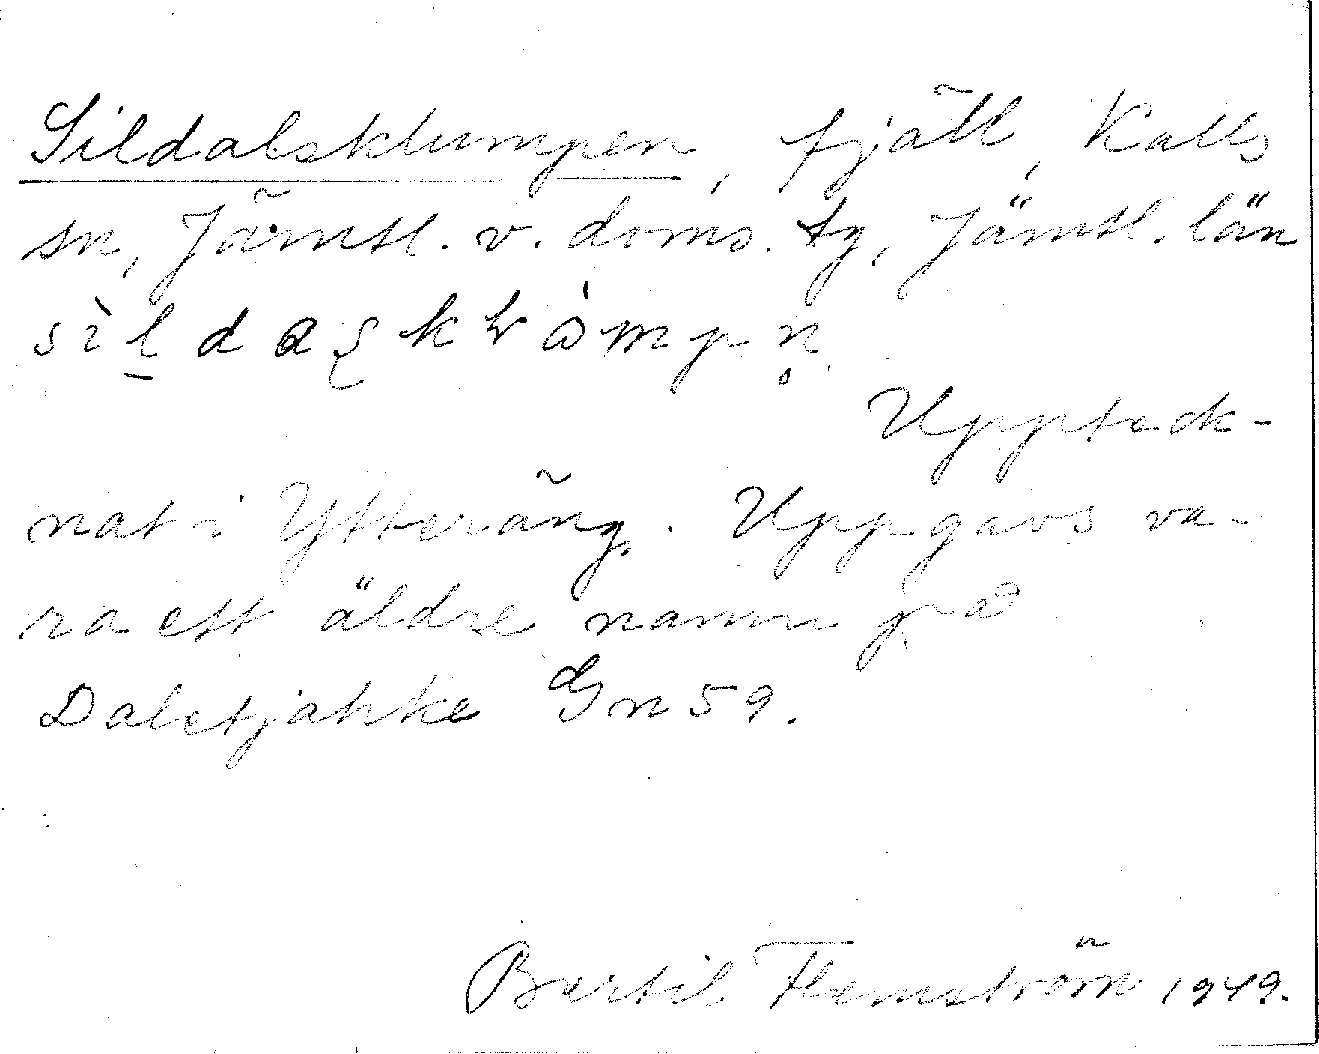 Sildalsklumpen, fjäll, Kalls
sn, Jämtl. v. doms. tg, Jämtl. län
Uppteck-
nat i Ytteräng. Uppgavs va-
ra ett äldre namn på
Daletjahke Gn 59.
Bertil Flemström 1949.